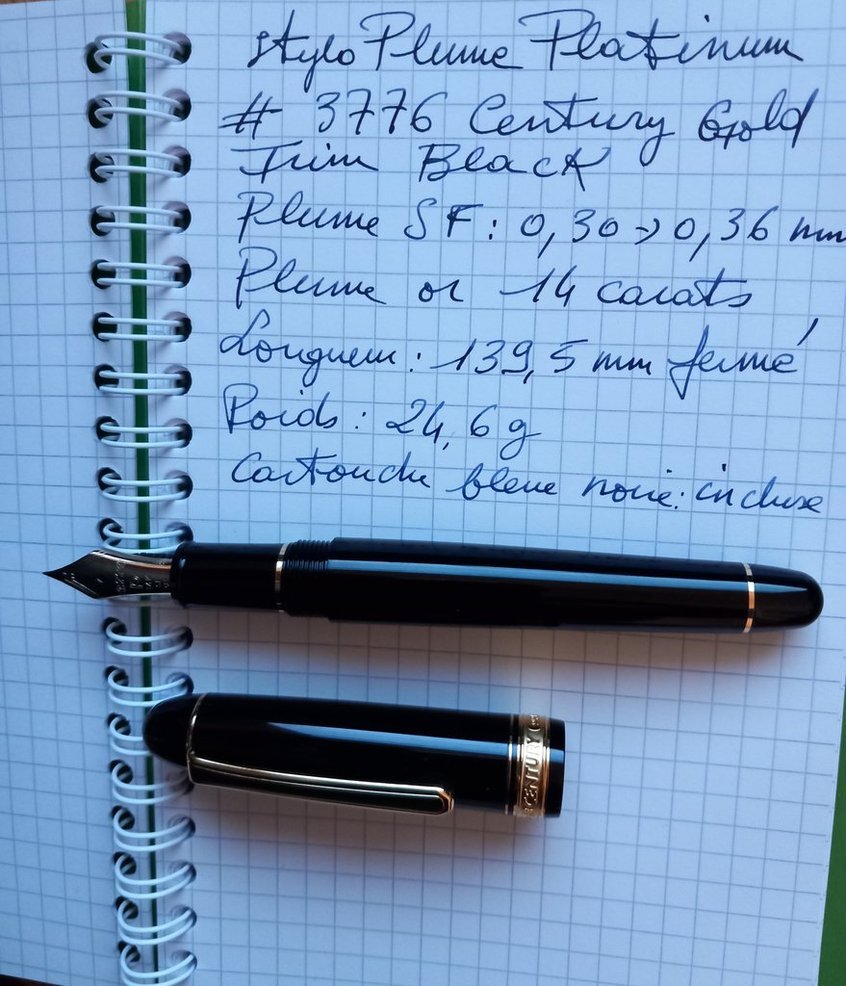 stylo Plume Platinum
# 3776 Century Gold
Trim Black
Plume SF: 0,30 → 0,36 mm
Plume or 14 carats
Longueur: 139,5 mm fermé
Poids: 24,6 g
Cartouche bleue noire: incluse
CENTURY